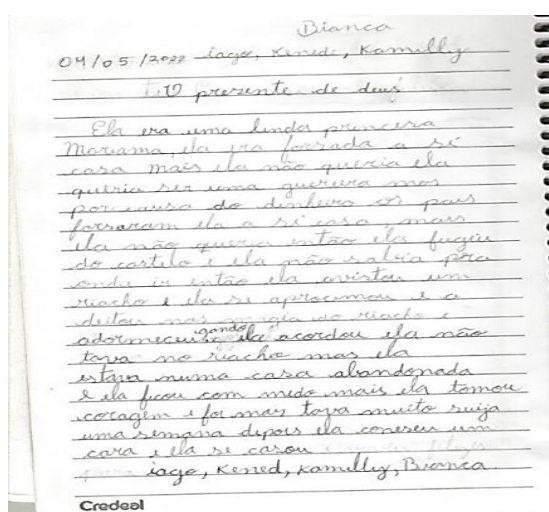 Bianca
04/05/2022 iago, Kenede, Kamilly
O prezente de deus
Ela era uma linda princesa
Mariama, ela era forsada a si
casa mais ela não queria ela
queria ser uma guereira mas
por causa do dinheiro os pais
forsaram ela a si casa, mais
ela não queria então ela fugiu
do castelo e ela não sabia pra
onde ir então ela avistou um
riacho e ela se aprocimou e a
deitou nas magia do riacho e
adormeceu qando ela acordou ela não
tava no riacho mas ela
estava numa casa abandonada
e ela ficou com medo mais ela tomou
coragem e foi mas tava muito suija
uma semana depois ela coneseu um
cara e ela se casou
iago, Kened, Kamilly, Bianca.
Credeal